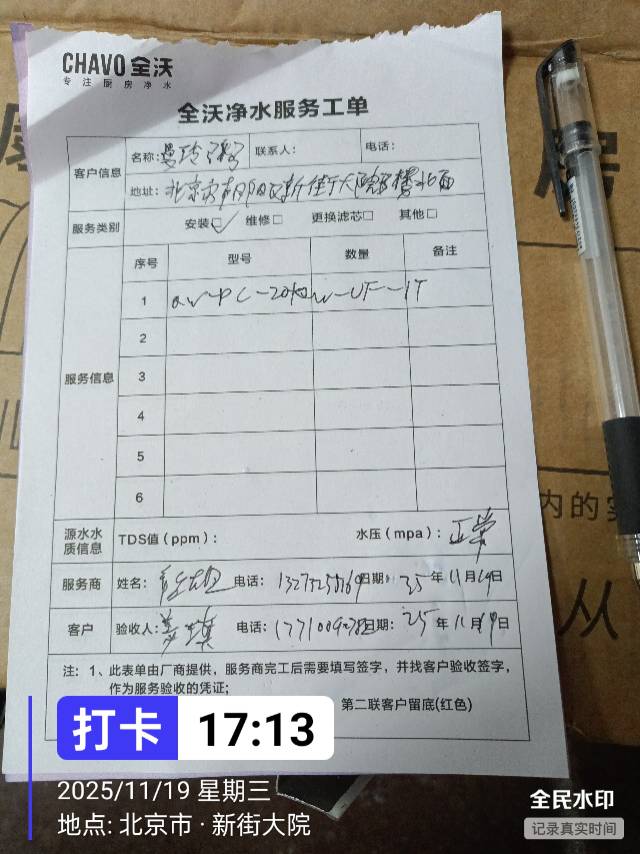 CHAVO 全沃
专注厨房净水
全沃净水服务工单
客户信息
名称：
联系人：
电话：
地址：北京市
服务类别
安装☑ 维修□ 更换滤芯□ 其他□
服务信息
序号 型号 数量 备注
1
2
3
4
5
6
源水水质信息
TDS值（ppm）：
水压（mpa）：正常
服务商 姓名： 电话： 日期：25年11月19日
客户 验收人： 电话： 日期：25年11月19日
注：1、此表单由厂商提供，服务商完工后需要填写签字，并找客户验收签字，
作为服务验收的凭证；
第二联客户留底(红色)
打卡 17:13
2025/11/19 星期三
地点: 北京市 · 新街大院
全民水印
记录真实时间
内的
从